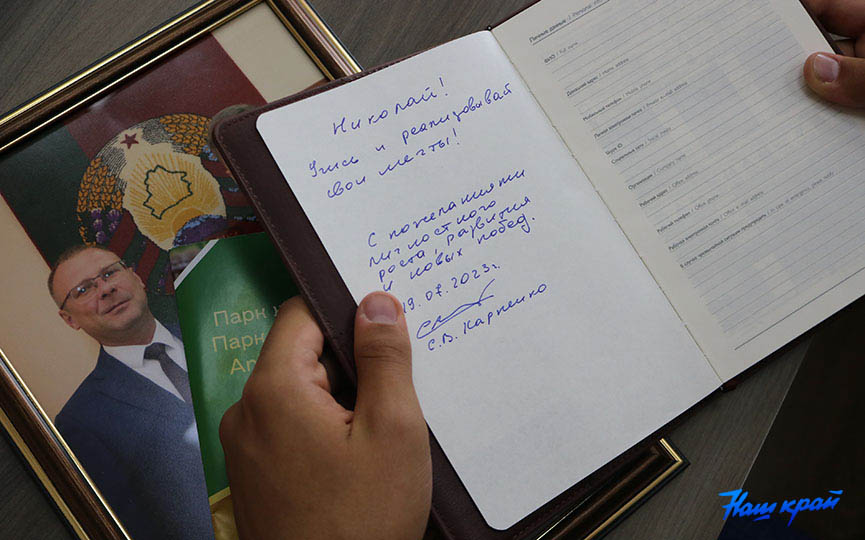 Николай!
Учись и реализовывай
свои мечты!
С пожеланиями
личностного
роста, развития
и новых побед.
19.07.2023г.
С.В. Карпенко
Личные данные / Personal data
ФИО / Full name
Домашний адрес / Home address
Мобильный телефон / Mobile phone
Личная электронная почта / Private e-mail address
Skype ID
Социальные сети / Social media
Организация / Company name
Рабочий адрес / Office address
Рабочий телефон / Office phone
Рабочая электронная почта / Office e-mail address
В случае чрезвычайной ситуации предупредить / In case of emergency please notify
Парк
Парн
Наш край